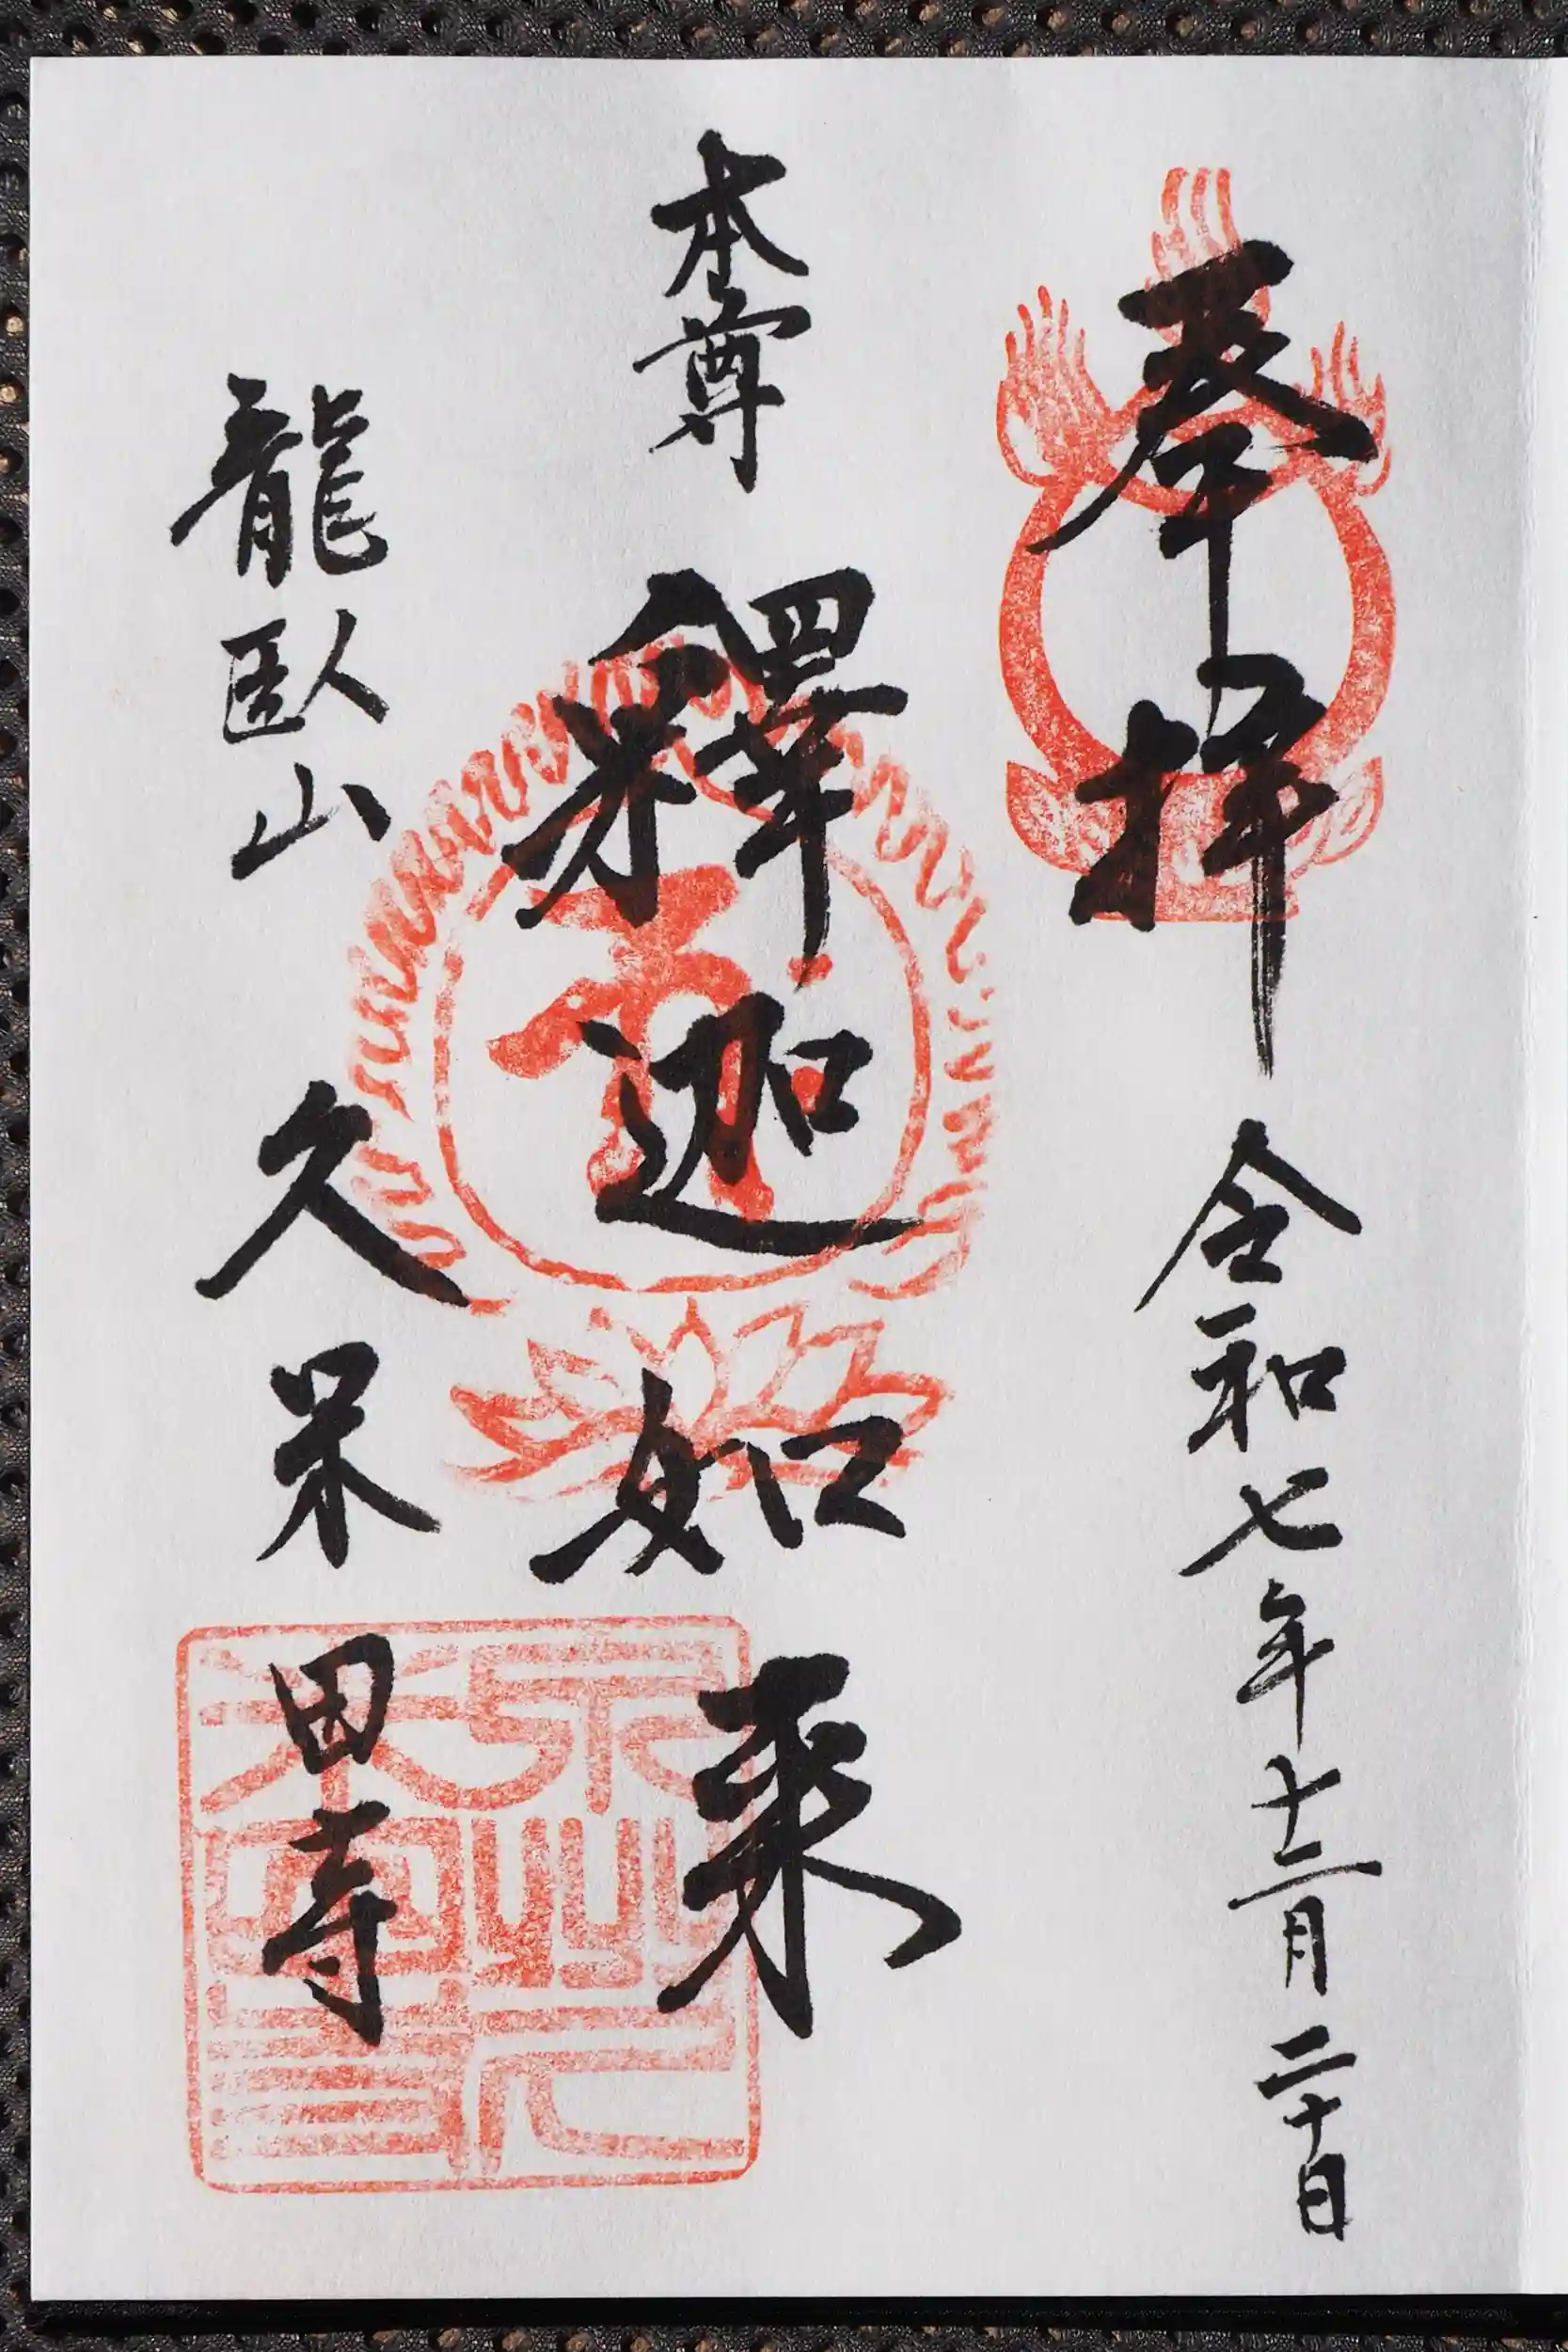 奉拝 令和七年十二月二十日
本尊 釋迦如来
龍臥山 久米田寺
泉州久
米田寺